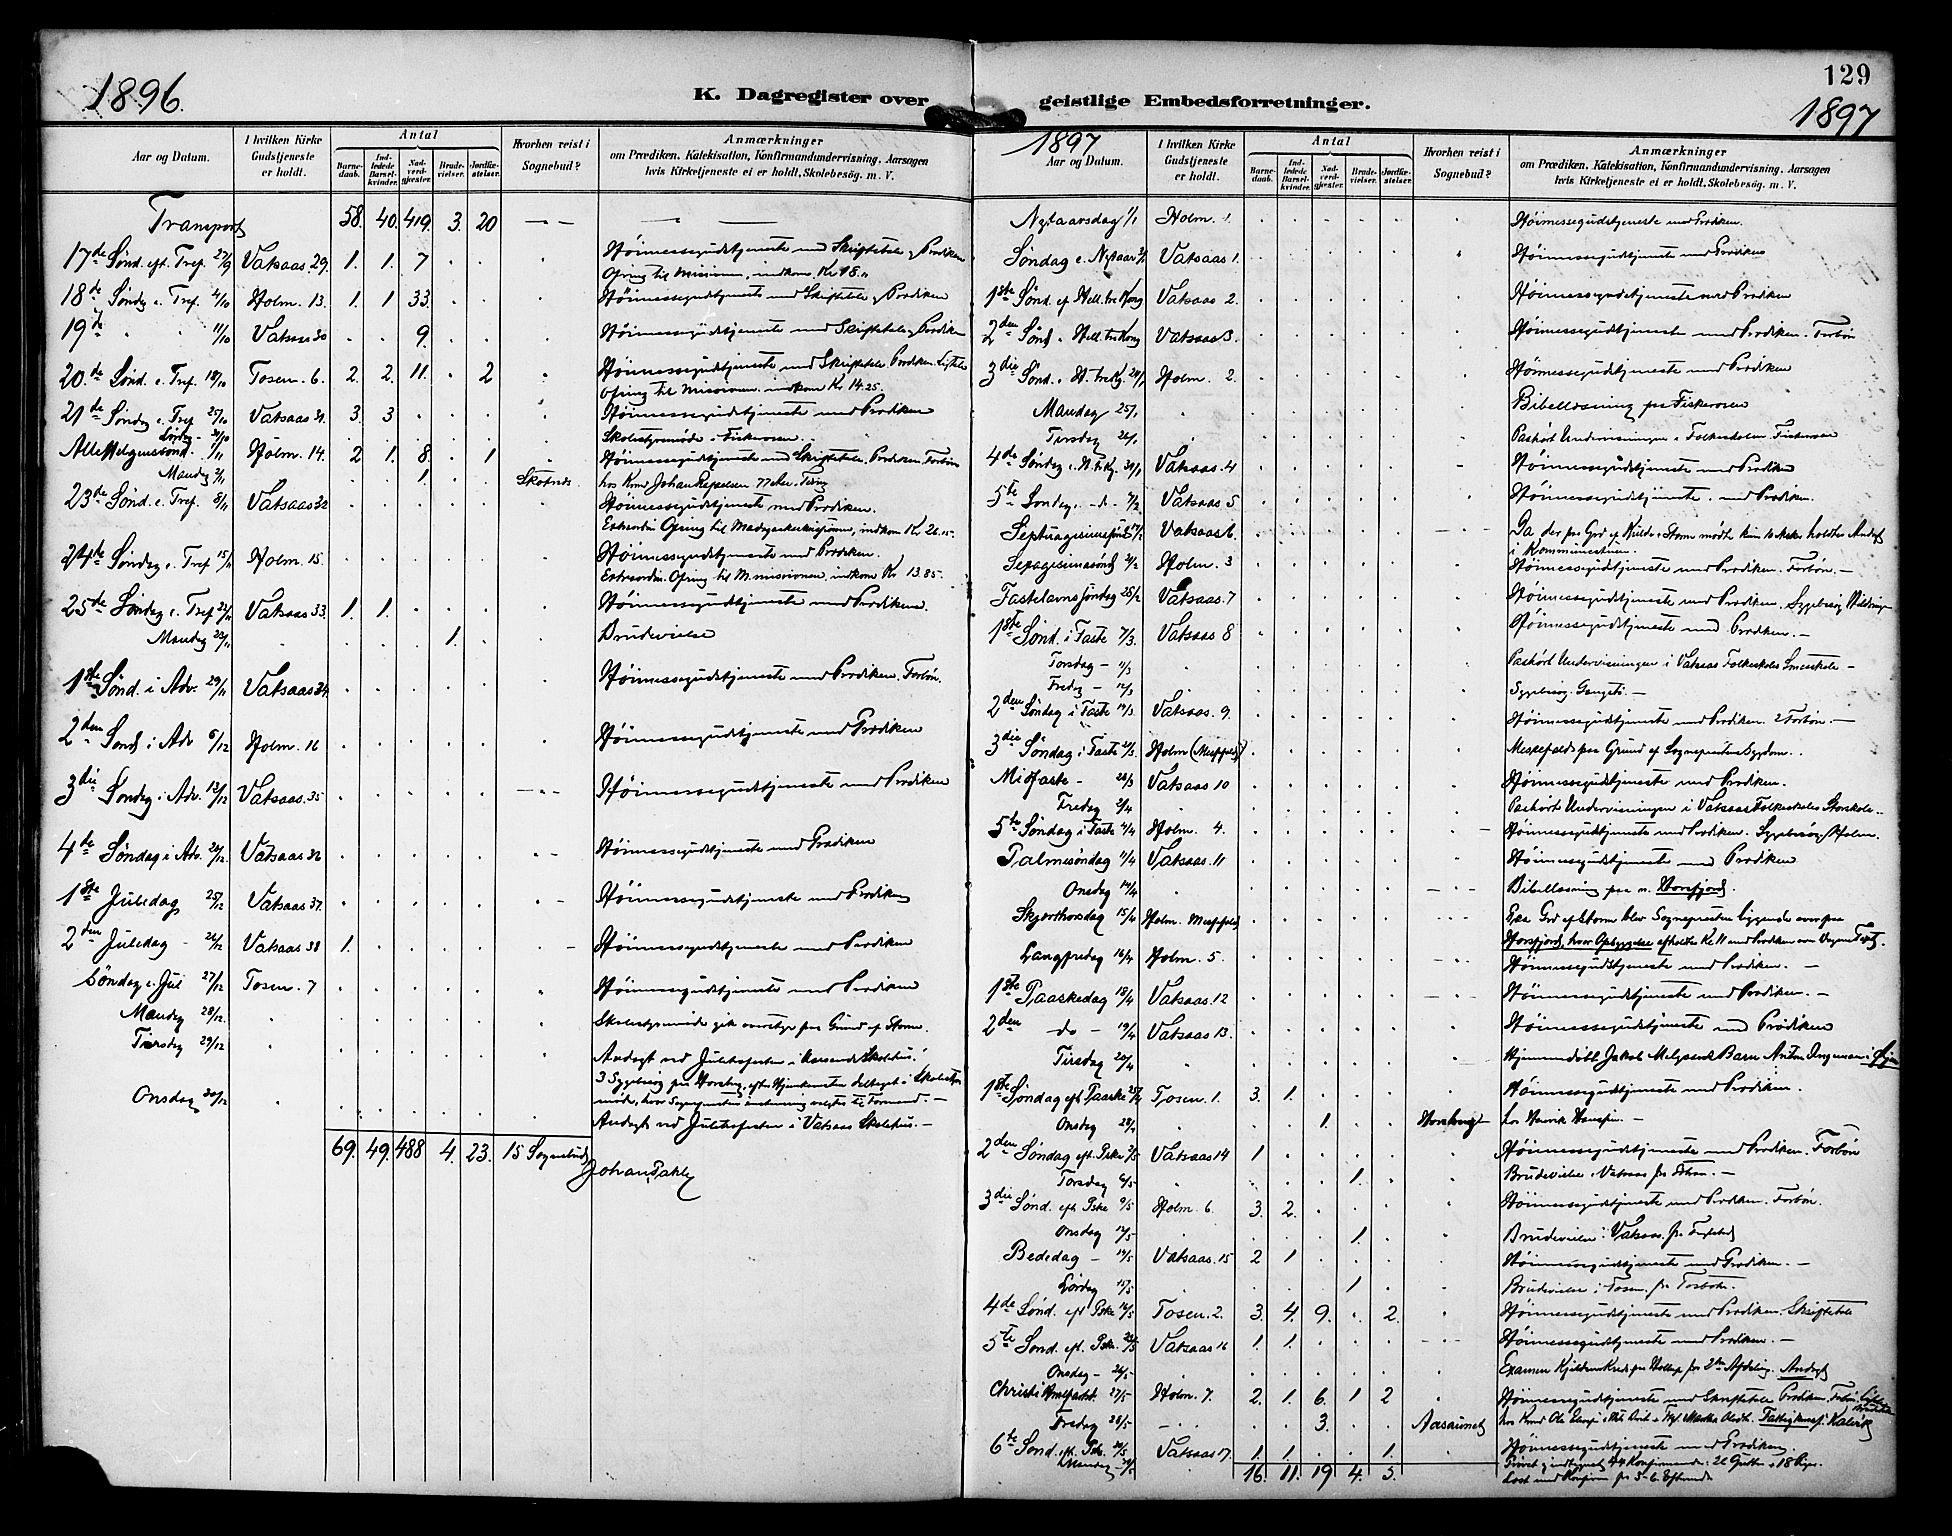 1896.
K. Dagregister over
Aar og Datum.
I hvilken Kirke Gudstjeneste er holdt.
Antal
Barnedaab.
Indledede Barselkvinder.
Nadverdgjester.
Brudevielser.
Jordfæstelser.
Hvorhen reist i Sognebud?
Anmærkninger
om Prædiken, Katekisation, Konfirmandundervisning, Aarsagen
hvis Kirketjeneste ei er holdt, Skolebesög. m. V.
Transport 58. 40. 419. 3. 20
17de Sønd. eft. Tref. 27/9 Vatsaas 29. 1. 1. 7 Høimessegudstjeneste med Skriftetale, Prædiken
Ofring til Missionen, indkom Kr 18.
18de Søndag e. Tref. 4/10 Holm. 13. 1. 1 33. Høimessegudstjeneste med Skriftetale, Prædiken
19de 11/10 Vatsaas 30 9. Høimessegudstjeneste med Skriftetale, Prædiken
20de Sønd. e. Tref. 18/10 Tosen. 6. 2. 2. 11. 2 Høimessegudstjeneste med Skriftetale Prædiken.
Ofring til Missionen. indkom Kr 14.25.
21de Søndag e. Tref 25/10 Vatsaas 31. 3. 3 Høimessegudstjeneste med Prædiken
Lørdag 31/10 Skolestyremøde i
Alle Helgenssønd. 1/11 Holm. 14. 2 1. 8. 1 Høimessegudstjeneste med Skriftetale, Prædiken. Forbøn
Mandag 2/11 1. hos Kmd Johan
23de Sønd. e. Tref. 8/11 Vatsaas 32 Høimessegudstjeneste med Prædiken.
Extraordin Ofring til indkom Kr 26.15.
24de Søndag e. Tref 15/11 Holm 15. Høimessegudstjeneste med Prædiken.
Extraordin. Ofring til M.missionen, indkom Kr 13.85.
25de Søndag e. Tref 22/11 Vatsaas 33. 1. 1. Høimessegudstjeneste med Prædiken.
Mandag 23/11 1. Brudevielse
1ste Sønd. i Adv. 29/11 Vatsaas 34. Høimessegudstjeneste med Prædiken. Forbøn.
2den Sønd i Adv 6/12 Holm. 16 Høimessegudstjeneste med Prædiken
3die Søndag i Adv. 13/12 Vatsaas. 35 Høimessegudstjeneste med Prædiken
4de Søndag i Adv. 20/12. Vatsaas 36 Høimessegudstjeneste med Prædiken
1ste Juledag 25/12 Vatsaas 37. Høimessegudstjeneste med Prædiken
2den Juledag 26/12 Vatsaas 38 1. Høimessegudstjeneste med Prædiken
Søndag e. Jul 27/12 Tosen. 7 Høimessegudstjeneste med Prædiken
Mandag 28/12. Skolestyremøde gik paa Grund af Storm.
Tirsdag 29/12 Andagt ved Juletræfesten i Skolehus.
3 Sygebesøg paa
Onsdag 30/12 Andagt ved Juletræfesten i Vatsaas Skolehus.
69. 49. 488 4. 23. 15 Sognebud
Johan
129
1897
geistlige Embedsforretninger.
1897
Aar og Datum.
I hvilken Kirke Gudstjeneste er holdt.
Antal
Barnedaab.
Indledede Barselkvinder.
Nadverdgjester.
Brudevielser.
Jordfæstelser.
Hvorhen reist i Sognebud?
Anmærkninger
om Prædiken, Katekisation, Konfirmandundervisning, Aarsagen
hvis Kirketjeneste ei er holdt, Skolebesög. m. V.
Nytaarsdag 1/1 Holm. 1. Høimessegudstjeneste med Prædiken.
Søndag e. Nytaar 3/1 Vatsaas 1. Høimessegudstjeneste med Prædiken
1ste Sønd. ef Hell. tre Kong Vatsaas 2. Høimessegudstjeneste med Prædiken
2den Sønd e. Hell. tre Kong Vatsaas 3. Høimessegudstjeneste med Prædiken. Forbøn
3die Sønd. e. H. tre Kg. 24/1 Holm. 2. Høimessegudstjeneste med Prædiken
Mandag 25/1 Bibellæsning paa Fiskerosen
Tirsdag 26/1 Paahørt Undervisningen i Folkeskolen Fiskerosen
4de Søndag e. H. tr. Kg. 31/1 Vatsaas. 4 Høimessegudstjeneste med Prædiken
5te Søndag e. do 7/2 Vatsaas 5 Høimessegudstjeneste med Prædiken.
Septuagesima 14/2 Vatsaas 6. Da der paa Grd af Kulde & Storm mødte kun holdtes Andagt
Sexagesimasønd 21/2 Holm. 3 Høimessegudstjeneste med Prædiken. Forbøn.
Fastelavnssøndag 28/2 Vatsaas. 7 Høimessegudstjeneste med Prædiken. Sygebesøg
1ste Sønd. i Faste 7/3. Vatsaas 8 Høimessegudstjeneste med Prædiken.
Torsdag 11/3 Paahørt Undervisningen i Vatsaas Folkeskoles Smaaskole
Fredag 12/3 Sygebesøg.
2den Søndag i Faste 14/3. Vatsaas. 9 Høimessegudstjeneste med Prædiken. 2 Forbøn.
3die Søndag i Faste 21/3. Holm (Messefald) Messefald paa Grund af Sognepræstens Sygdom.
Midfaste 28/3 Vatsaas 10 Høimessegudstjeneste med Prædiken.
Fredag 2/4 Paahørt Undervisningen i Vatsaas Folkeskoles Storskole
5te Søndag i Faste 4/4 Holm. 4. Høimessegudstjeneste med Prædiken. Sygebesøg, Holm.
Palmesøndag 11/4 Vatsaas. 11 Høimessegudstjeneste med Prædiken
Onsdag 14/4 Bibellæsning paa Horsfjord.
Skjærthorsdag 15/4 Holm. Messefald Paa Grd af Storm blev Sognepræsten liggende
Horsfjord, hvor Opbyggelse afholdtes Kl 11 med Prædiken over Text.
Langfredag 16/4 Holm. 5. Høimessegudstjeneste med Prædiken.
1ste Paaskedag 18/4 Vatsaas. 12 Høimessegudstjeneste med Prædiken.
2den do 19/4 Vatsaas 13. Høimessegudstjeneste med Prædiken
Tirsdag 20/4 Hjemmedøbt Jakob Barn Anton
1ste Søndag eft Paaske 25/4 Tosen. 1. 3. 1. Høimessegudstjeneste med Prædiken.
Onsdag 28/4 1. hos Henrik
2den Søndag eft. Pske 2/5 Vatsaas 14 1 Høimessegudstjeneste med Prædiken. Forbøn
Torsdag 6/5 1. Brudevielse i Vatsaas
3die Sønd. eft Pske 9/5 Holm. 6. 3. 2. Høimessegudstjeneste med Prædiken. Forbøn.
Onsdag 12/5 1. Brudevielse i Vatsaas.
Bededag 14/5 Vatsaas. 15 2 1 Høimessegudstjeneste med Prædiken.
Lørdag 15/5 1 Brudevielse i Tosen. fra Tosbotn.
4de Sønd. eft Pske 16/5 Tosen. 2. 3. 4. 9. 2. Høimessegudstjeneste med Prædiken. Skriftetale
5te Sønd. eft. Pske. 23/5 Vatsaas 16 1. 1. Høimessegudstjeneste med Prædiken.
Onsdag 26/5 Examen 2den Afdeling. Andagt
Christi Himmelfartsd. 27/5 Holm. 7. 2. 1. 6. 1 2 Høimessegudstjeneste med Skriftetale Prædiken
Fredag 28/5 3. Aasaunet hos Kmd Ole
6te Sønd. eft. Psk. 30/5 Vatsaas 17. 1. 1. 1. Høimessegudstjeneste med Prædiken
Mandag 31/5 44 Konfirmander: 26 Gutter & 18 Piger.
16. 11. 19 4. 5.